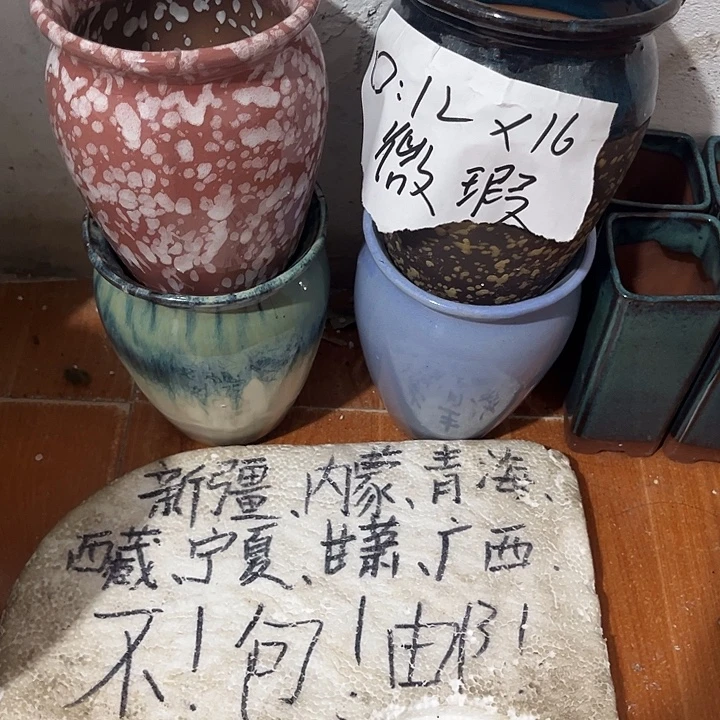 D:12×16
微瑕
新疆、内蒙、青海、
西藏、宁夏、甘萧、广西.
不!包!邮!